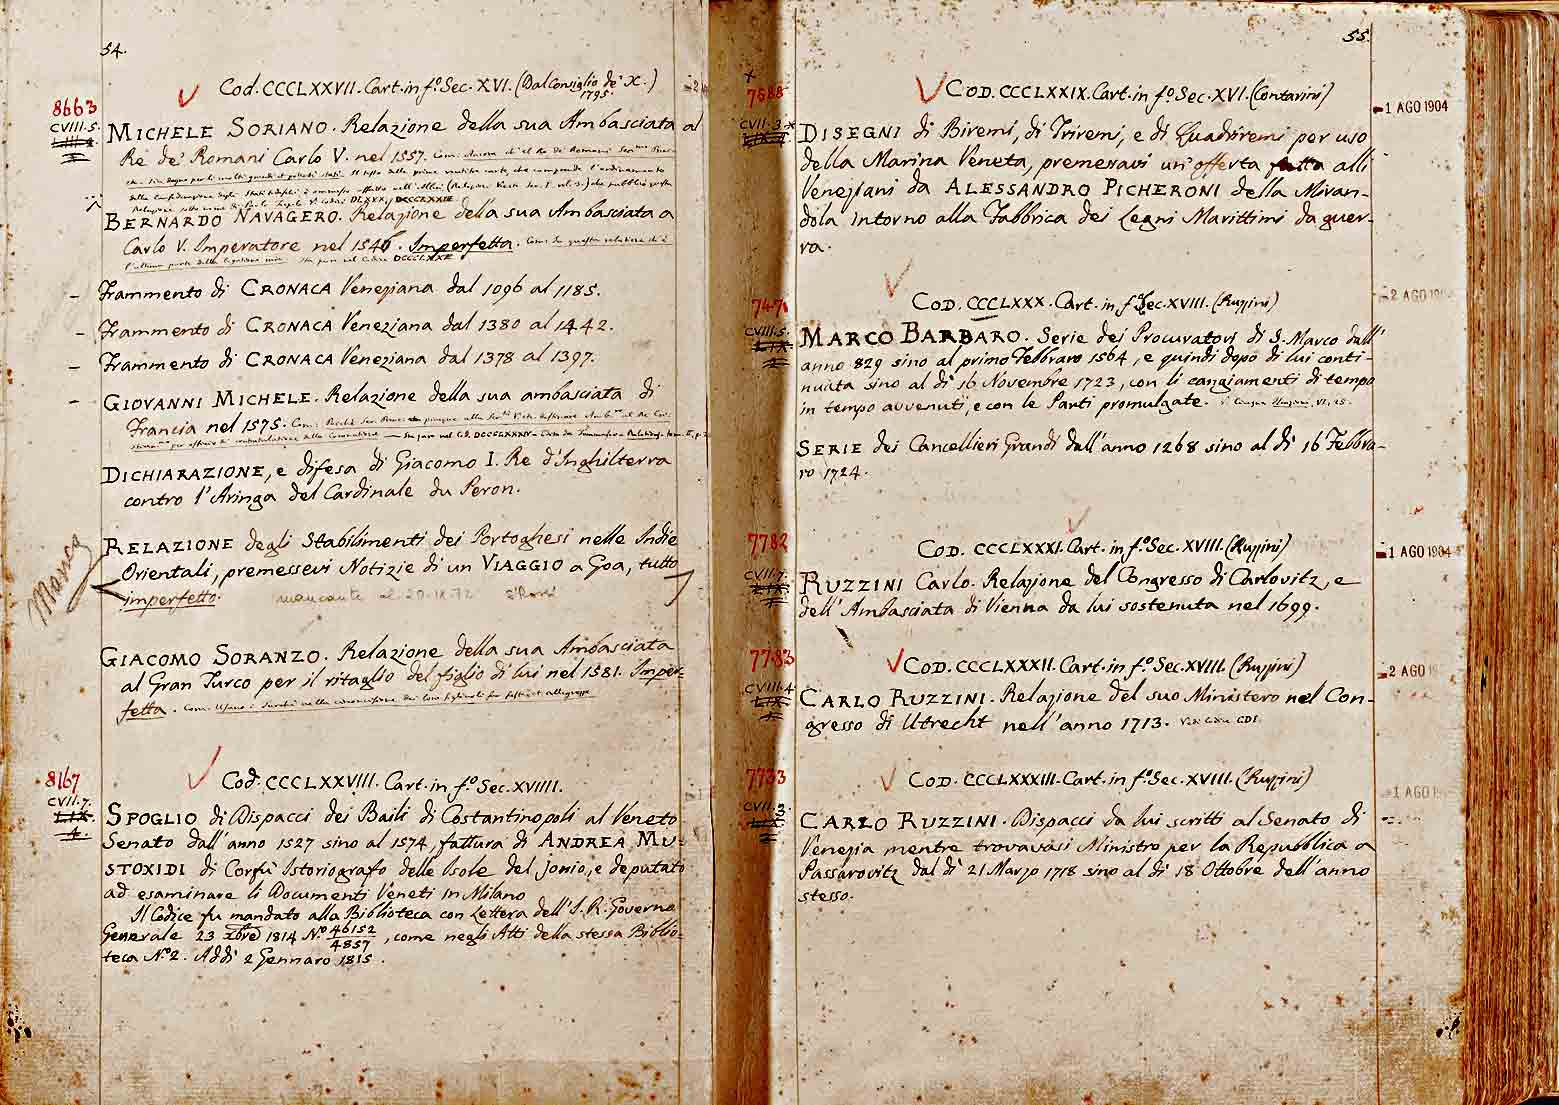 54.
Cod. CCCLXXVII. Cart. in f.º Sec. XVI. (Dal Consiglio de' X.)
1795.
8663
CVIII.5.
MICHELE SORIANO. Relazione della sua Ambasciata al
Rè de' Romani Carlo V. nel 1557.
DLXXX, DCCCLXXIX
BERNARDO NAVAGERO. Relazione della sua Ambasciata a
Carlo V. Imperatore nel 1546. Imperfetta. Com: In questa relatione ch'è
l'ultima parte della legatione mia. Sta pure nel Codice DCCCLXXIX
– Frammento di CRONACA Veneziana dal 1096 al 1185.
– Frammento di CRONACA Veneziana dal 1380 al 1442.
– Frammento di CRONACA Veneziana dal 1378 al 1397.
– GIOVANNI MICHELE. Relazione della sua ambasciata di
Francia nel 1575.
DICHIARAZIONE, e difesa di Giacomo I. Re d'Inghilterra
contro l'Aringa del Cardinale du Peron.
Manca
RELAZIONE degli Stabilimenti dei Portoghesi nelle Indie
Orientali, premessevi Notizie di un VIAGGIO a Goa, tutto
imperfetto. mancante al 20.IX.72
GIACOMO SORANZO. Relazione della sua Ambasciata
al Gran Turco per il ritaglio del figlio di lui nel 1581. Imper-
fetta.
8167
CVII.7.
LIX.
4.
Cod. CCCLXXVIII. Cart. in f.º Sec. XVIIII.
SPOGLIO di Dispacci dei Baili di Costantinopoli al Veneto
Senato dall'anno 1527 sino al 1574, fattura di ANDREA MU-
STOXIDI di Corfù Istoriografo delle Isole del jonio, e deputato
ad esaminare li Documenti Veneti in Milano
Il Codice fu mandato alla Biblioteca con Lettera dell'I. R. Governo
Generale 23 Xbre 1814 N.º 46152/4857, come negli Atti della stessa Biblio-
teca N.º 2. Addì 2 Gennaro 1815.
55.
7688
CVII.3.
COD. CCCLXXIX. Cart. in f.º Sec. XVI. (Contarini)
1 AGO 1904
DISEGNI di Biremi, di Triremi, e di Quadriremi per uso
della Marina Veneta, premeravi un'offerta fatta alli
Veneziani da ALESSANDRO PICHERONI della Miran-
dola intorno alla Fabbrica dei Legni Marittimi da guer-
ra.
COD. CCCLXXX. Cart. in f.º Sec. XVIII. (Ruzzini)
2 AGO 1904
CVIII.5.
MARCO BARBARO. Serie dei Procuratori di S. Marco dall'
anno 829 sino al primo Febbraro 1564, e quindi dopo di lui conti-
nuata sino al dì 16 Novembre 1723, con li cangiamenti di tempo
in tempo avvenuti, e con le Parti promulgate.
SERIE dei Cancellieri Grandi dall'anno 1268 sino al dì 16 Febbra-
ro 1724.
7782
CVII.7.
COD. CCCLXXXI. Cart. in f.º Sec. XVIII. (Ruzzini)
1 AGO 1904
RUZZINI Carlo. Relazione del Congresso di Carlovitz, e
dell'Ambasciata di Vienna da lui sostenuta nel 1699.
7783
CVIII.4.
COD. CCCLXXXII. Cart. in f.º Sec. XVIII. (Ruzzini)
2 AGO
CARLO RUZZINI. Relazione del suo Ministero nel Con-
gresso di Utrecht nell'anno 1713.
COD. CCCLXXXIII. Cart. in f.º Sec. XVIII. (Ruzzini)
1 AGO
CARLO RUZZINI. Dispacci da lui scritti al Senato di
Venezia mentre trovavasi Ministro per la Repubblica a
Passarovitz dal dì 21 Marzo 1718 sino al dì 18 Ottobre dell'anno
stesso.